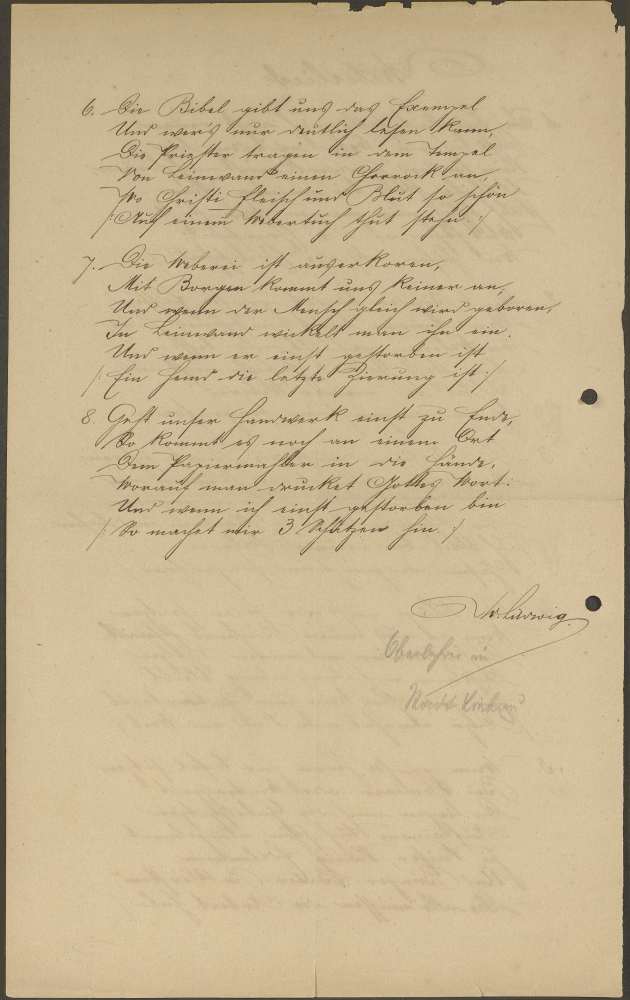 6. Die Bibel gibt uns das Exempel
Und wer's nur deutlich lesen kann,
Die Priester tragen in dem Tempel
Von Leinwand einen Chorrock an,
Wo Christi Fleisch und Blut so schön
/: Auf einem Webertuch thut stehn. :/
7. Die Weberei ist auserkoren,
Mit Borgen kommt uns keiner an,
Und wenn der Mensch gleich wird geboren,
In Leinwand wickelt man ihn ein.
Und wenn er einst gestorben ist
/: Ein Hemd die letzte Zierung ist :/
8. Geht unser Handwerk einst zu Ende,
So kommt es noch an einem Ort
Dem Papiermahler in die Hände,
Worauf man drucket Gottes Wort:
Und wenn ich einst gestorben bin
/: So machet mir 3 Schützen hin. :/
Ludwig.
Oberlehrer in
Markt